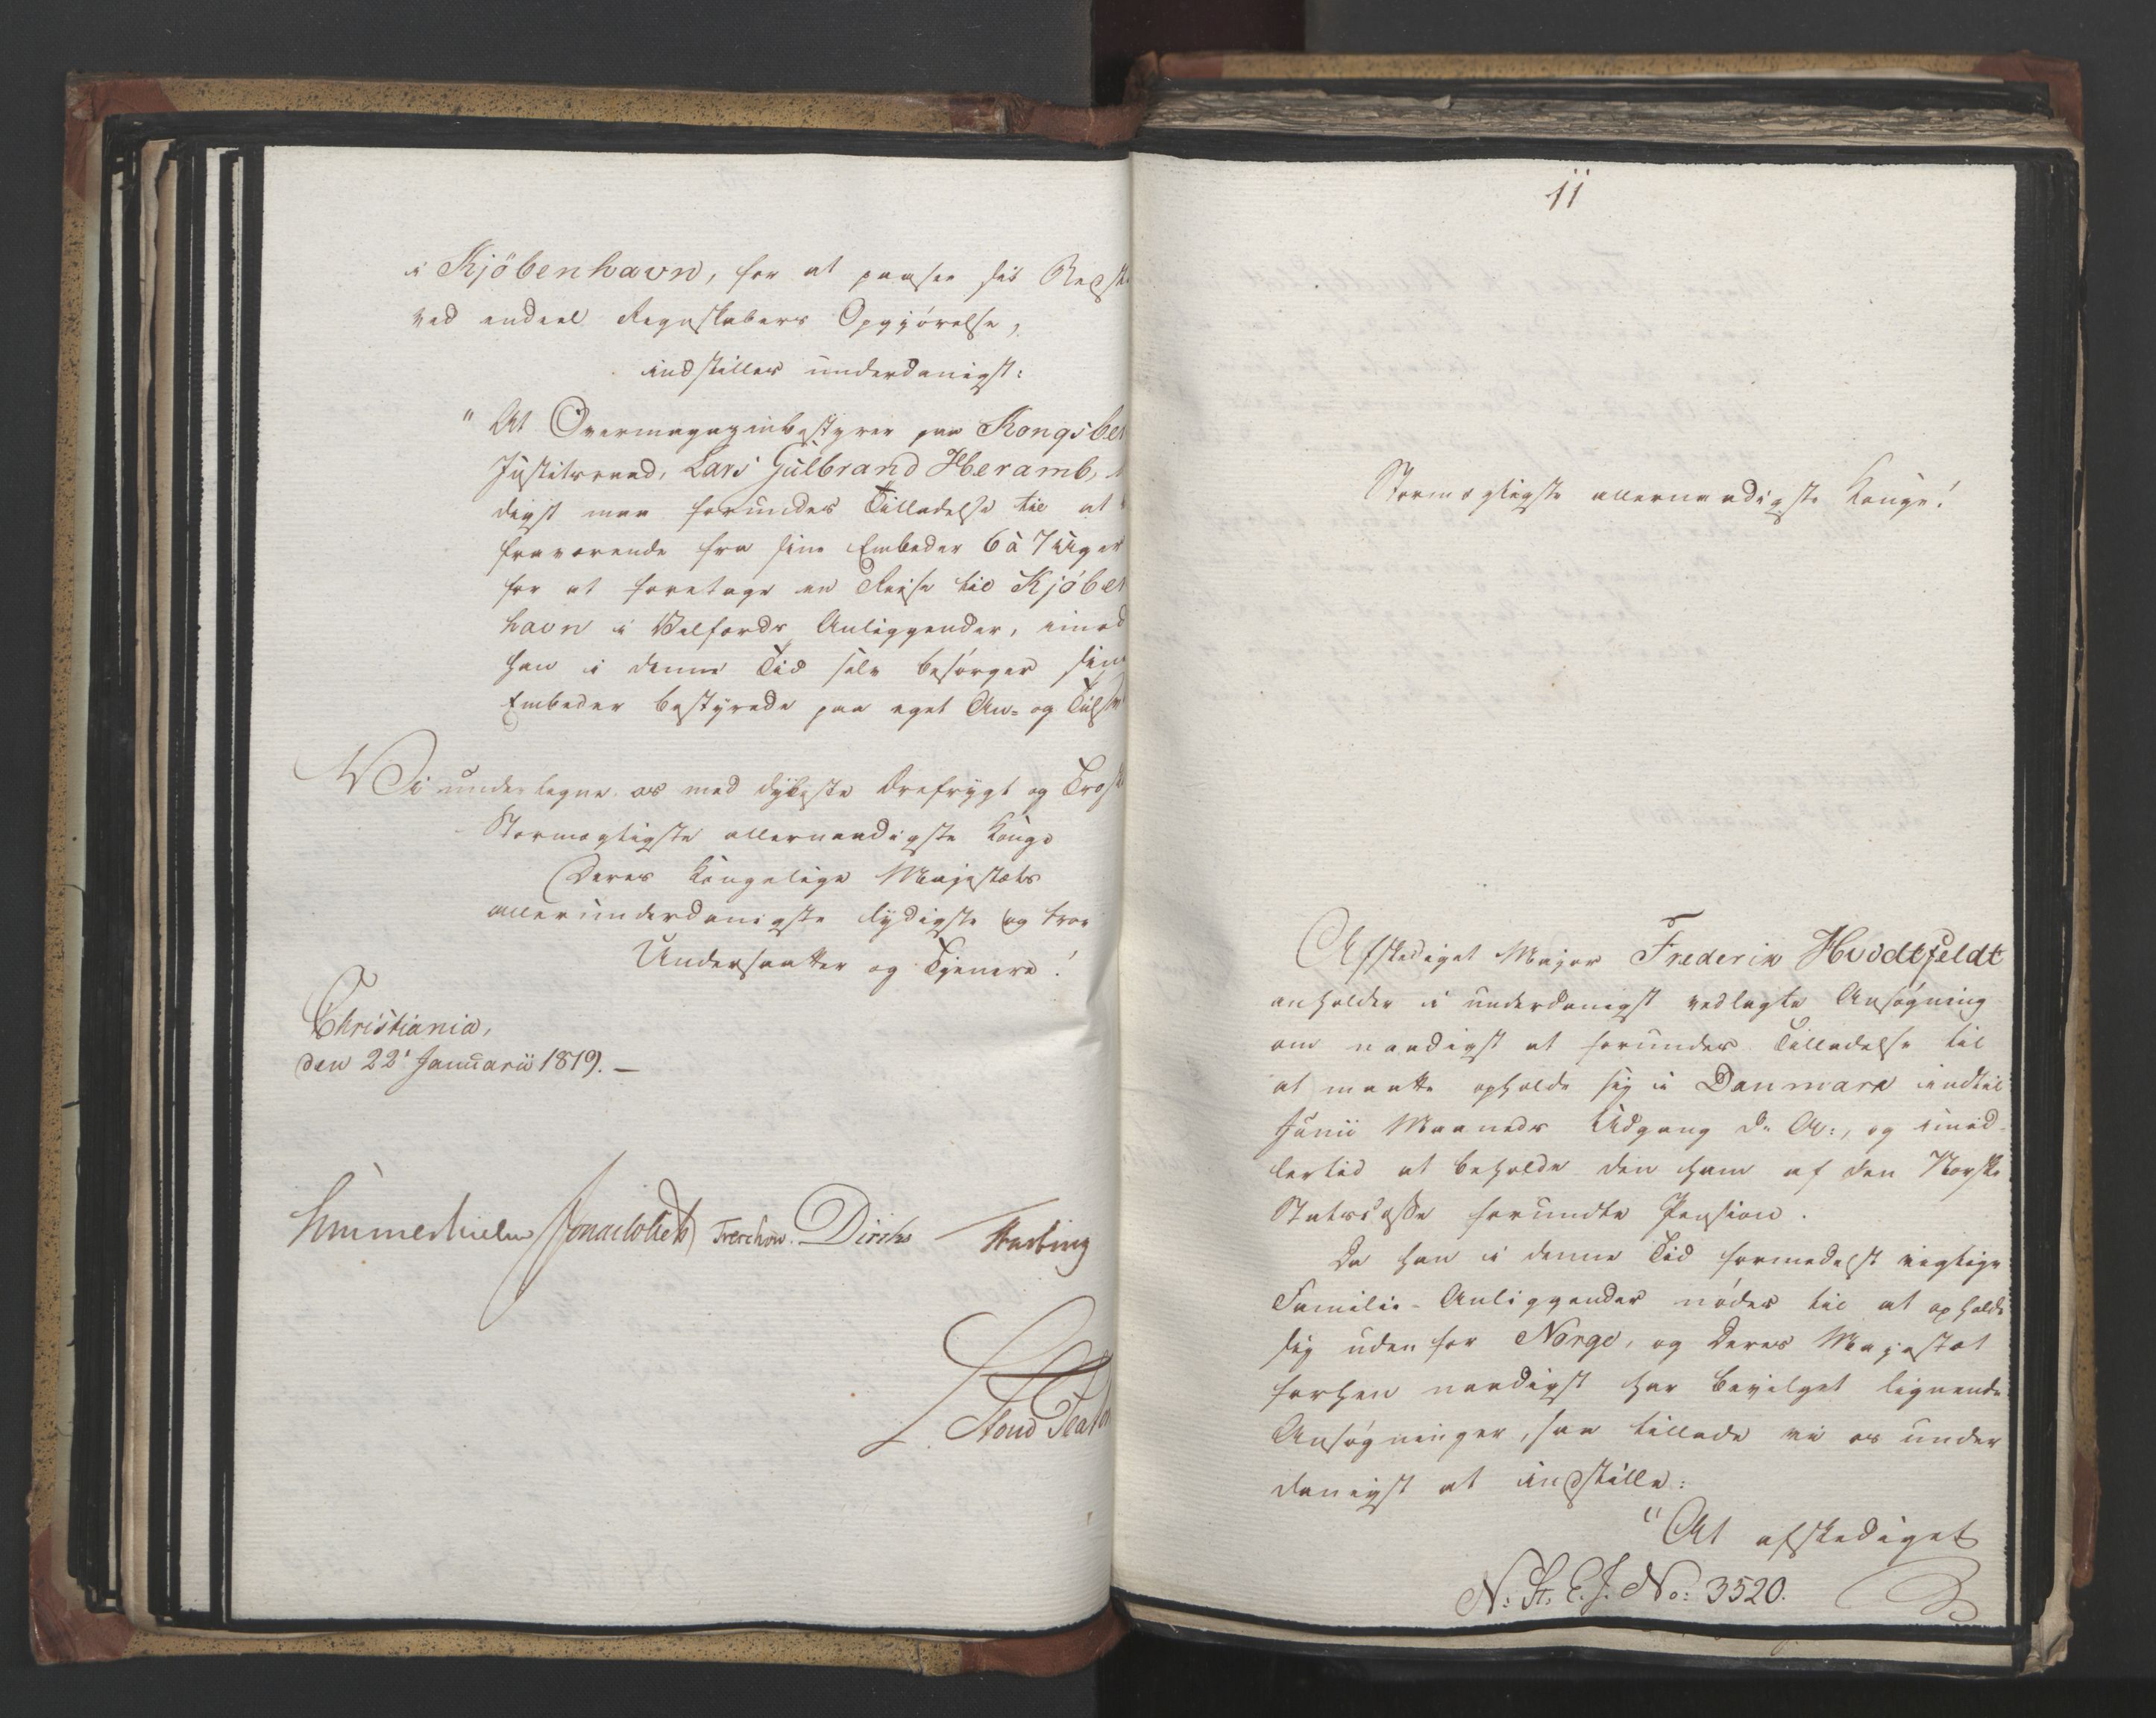 i Kjöbenhavn, for at paasee sit Regsk
ved endeel Regnskabers Opgjörelse,
indstilles underdanigst:
" At Overmagazinbestyrer paa Kongsber
Justitsraad, Lars Gulbrand Heramb,
digst maa forundes Tilladelse til at
fraværende fra sine Embeder 6 à 7 Uger
for at foretage en Reise til Kjöben
havn i Velfærds Anliggender, imod
han i denne Tid selv besörger sine
Embeder bestyrede paa eget An- og Tilsv
Vi undertegne os med dybeste Ærefrygt og Trosk
Stormægtigste allernaadigste Konge
Deres Kongelige Majestæts
allerunderdanigste lydigste og troe
Undersaatter og Tjenere!
Christiania,
den 22' Januarii 1819.—
Hmmerhielm Jonas Collett Treschow. Diriks
L. Stoud Platou
11
Stormægtigste allernaadigste Konge!
Afskediget Major Frederik Hvidtfeldt
anholder i underdanigst vedlagte Ansøgning
om naadigst at forundes Tilladelse til
at maatte opholde sig i Danmark indtil
Junii Maaneds Udgang d. A:, og imid-
lertid at beholde den ham af den Norske
Statscasse forundte Pension.
Da han i denne Tid formedelst vigtige
Familie-Anliggender nödes til at opholde
sig uden for Norge, og Deres Majestæt
forhen naadigst har bevilget lignende
Ansøgninger, saa tillade vi os under
danigst at indstille:
"At afskediget
N: St. E. J. No: 3520.